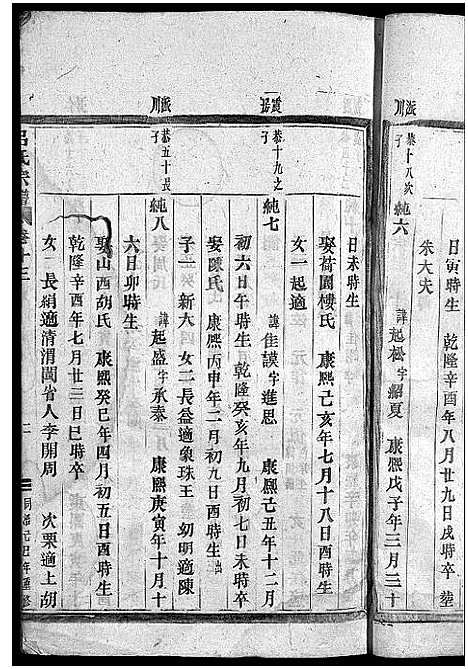 日寅時生 乾隆辛酉年八月廿九日戌時卒 塟
朱大夫
派川 恭十八次子 純六 諱起松字紹夏 康熙戊子年三月三十
日未時生
娶荷園樓氏 康熙己亥年七月十八日酉時生
女一起適
恭十九之子 純七 諱佳謨字進思 康熙己丑年十二月
初六日午時生 乾隆癸亥年九月初七日未時卒
娶陳氏 康熙丙申年二月初九日酉時生 出
子一 新六 女二長益適象珠王 幼明適陳
派川 恭五十長子 純八 諱起盛字承泰 康熙庚寅年十月十
六日卯時生
娶山西胡氏 康熙癸巳年四月初五日酉時生
乾隆辛酉年七月廿三日巳時卒
女二長絹適清渭閩省人李開周 次栗適上胡
呂氏宗譜 卷十三